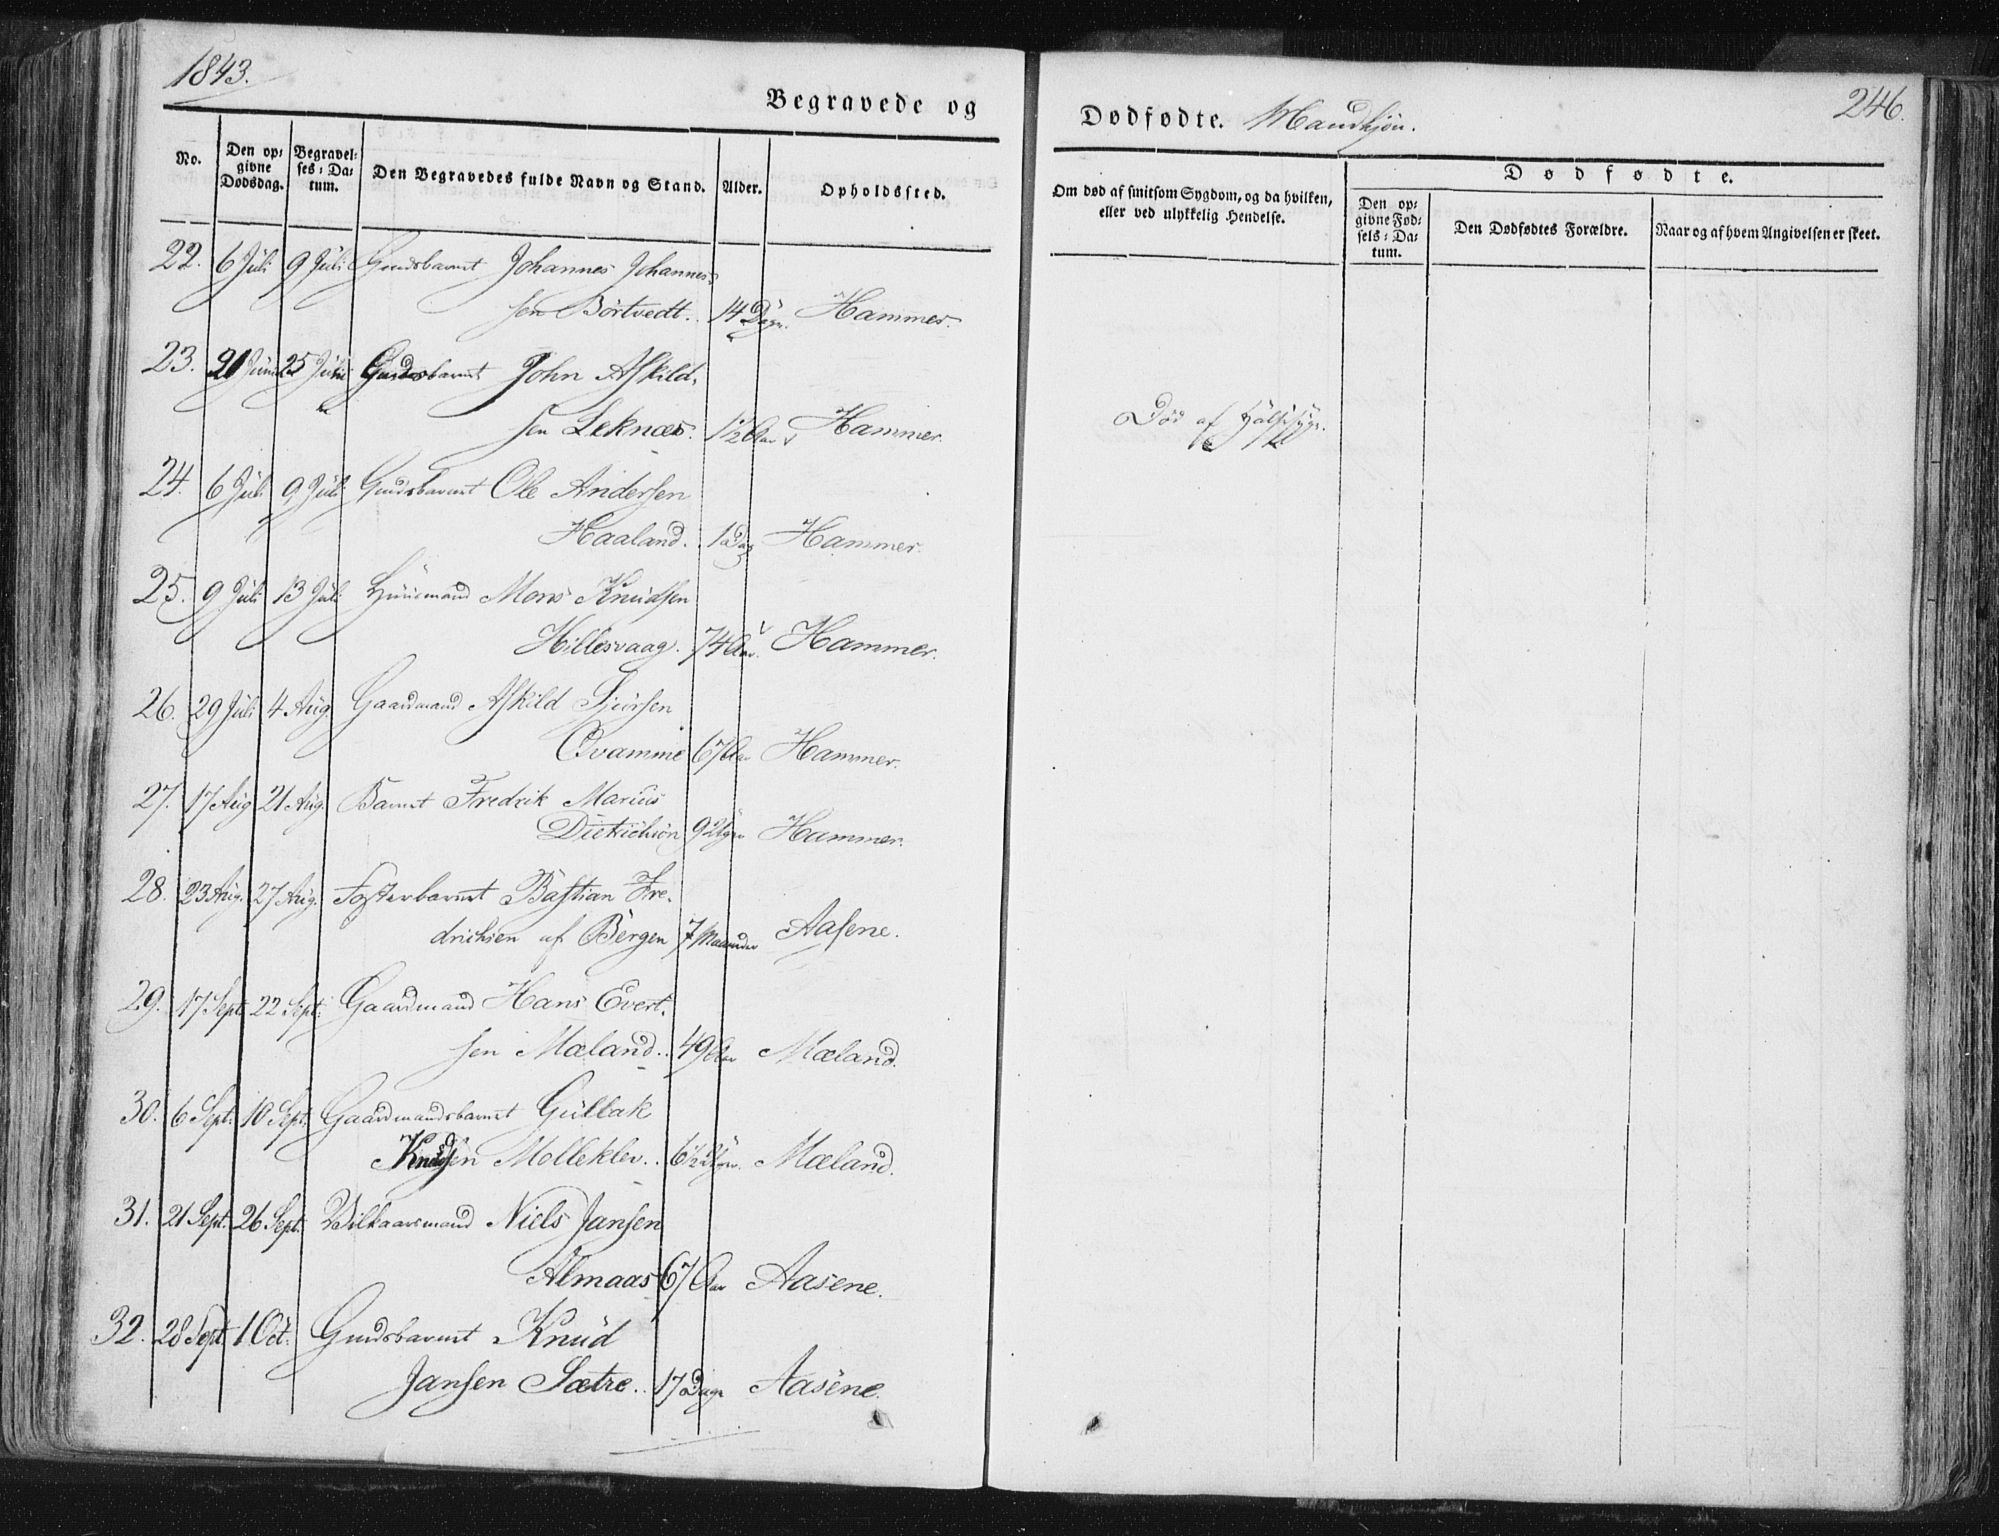 1843.
Begravede og
Dødfødte. Mandkjøn.
246.
No.
Den op-
givne
Dødsdag.
Begravel-
ses-Da-
tum.
Den Begravedes fulde Navn og Stand.
Alder.
Opholdssted.
Om død af smitsom Sygdom, og da hvilken,
eller ved ulykkelig Hendelse.
Dødfødte.
Den op-
givne Fød-
sels-Da-
tum.
Den Dødfødtes Forældre.
Naar og af hvem Angivelsen er skeet.
22. 6 Juli 9 Juli Gmdsbarnet Johannes Johannes-
sen Börtvedt. 14 Dage. Hammer.
23. 25 Gmdsbarnet John Askild-
sen Leknæs. 1½ Aar Hammer
Död af
24. 6 Juli 9 Juli Gmdsbarnet Ole Andersen
Haaland. 1 Dag Hammer.
25. 9 Juli 13 Juli Huusmand Mons Knudsen
Hillesvaag. 74 Aar. Hammer.
26. 29 Juli 4 Aug. Gaardmand Askild
Qvamme 67 Aar Hammer.
27. 17 Aug 21 Aug. Barnet Fredrik Marius
Dietrichson 9 Hammer.
28. 23 Aug. 27 Aug. Fosterbarnet Bastian Fre-
drichsen af Bergen 7 Maaneder Aasene.
29. 17 Sept 22 Sept. Gaardmand Hans Evert-
sen Mæland. 49 Aar Mæland.
30. 6 Sept. 10 Sept. Gaardmandsbarnet Gullak
Knudsen Molleklev. 6½ Mæland.
31. 21 Sept. 26 Sept. Vilkaarsmand Niels Jansen
Almaas 67 Aar Aasene.
32. 28 Sept 1 Oct. Gmdsbarnet Knud
Jansen Sætre. 17 Dage Aasene.